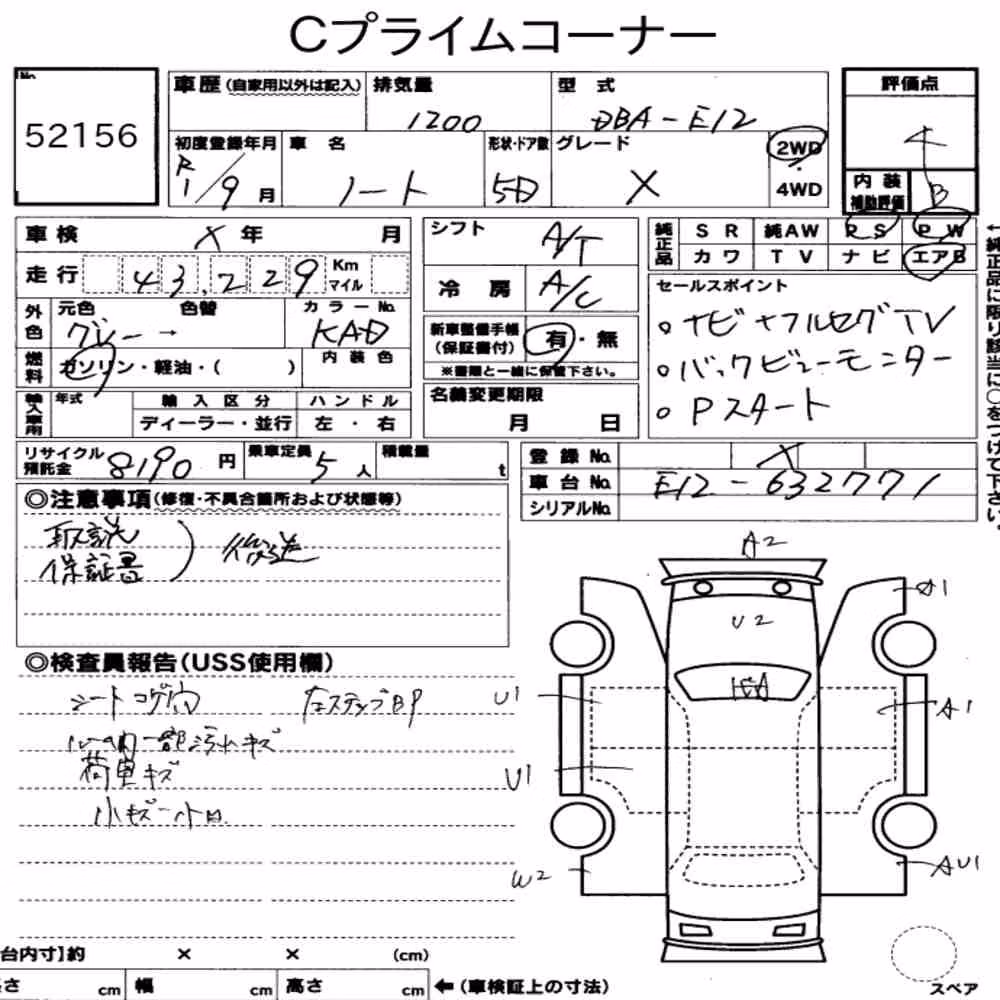 Cプライムコーナー
No.
52156
車歴(自家用以外は記入) 排気量 型 式
1200 DBA-E12
初度登録年月 車 名 形状・ドア数 グレード
R1/9月 ノート 5D X
2WD
・
4WD
評価点
4
内装
補助評価 B
車検 X 年 月
走行 43,229 Km
マイル
外色 元色 色替 カラーNo.
グレー → KAD
燃料 ガソリン・軽油・( ) 内装色
輸入車用 年式 輸入区分 ハンドル
ディーラー・並行 左・右
シフト A/T
冷房 A/C
新車整備手帳
(保証書付) 有・無
※書類と一緒に保管下さい。
名義変更期限
月 日
純正品 SR 純AW PS PW
カワ TV ナビ エアB
セールスポイント
○ナビ+フルセグTV
○バックビューモニター
○Pスタート
←純正品に限り該当に○をつけて下さい。
リサイクル
預託金 8190円 乗車定員 5人 積載量 t
登録No. X
車台No. E12-632771
シリアルNo.
◎注意事項(修復・不具合箇所および状態等)
取説
保証書 ) 後送
◎検査員報告(USS使用欄)
シートコゲ穴 左ステップBP
ルーム内一部汚れキズ
荷室キズ
小キズ・小凹
A2
A1
U2
U1
A1
U1
W2
AU1
台内寸】約 × × (cm)
さ cm 幅 cm 高さ cm ←(車検証上の寸法)
スペア